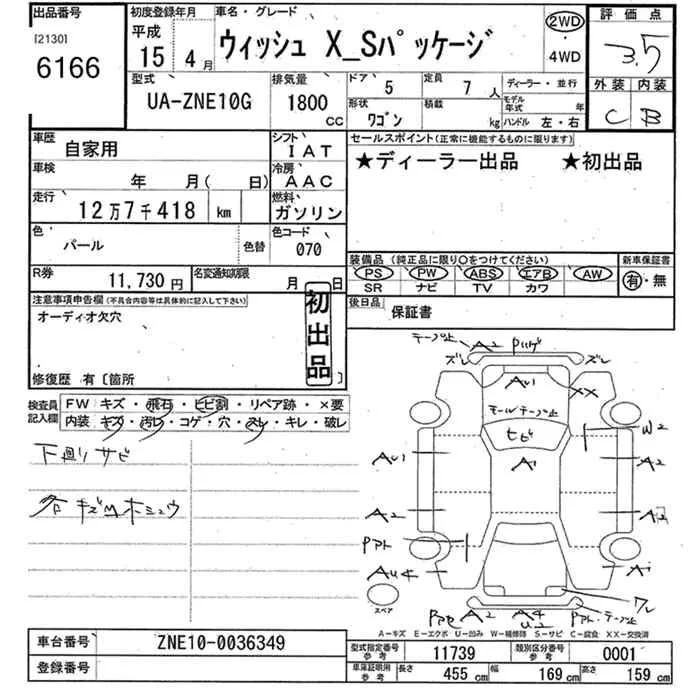 出品番号
[2130]
6166
初度登録年月
平成
15年 4月
車名・グレード
ウィッシュ X_Sパッケージ
2WD
・
4WD
評価点
3.5
外装 内装
C B
型式
UA-ZNE10G
排気量
1800
CC
ドア 5
定員 7人
ディーラー・並行
形状 ワゴン
積載 kg
モデル年式 年
ハンドル 左・右
車歴
自家用
シフト
IAT
車検
年 月( 日)
冷房
AAC
走行
12万7千418 km
燃料
ガソリン
色
パール
色替
色コード
070
R券
11,730円
名変通知期限
月 日
セールスポイント(正常に機能するものに限ります)
★ディーラー出品 ★初出品
装備品(純正品に限り○をつけてください)
PS PW ABS エアB AW
SR ナビ TV カワ
新車保証書
有・無
後日品
保証書
注意事項申告欄(不具合内容等は具体的に記入して下さい)
オーディオ欠穴
初出品
修復歴 有〔箇所 〕
検査員記入欄
FW キズ・飛石・ヒビ割・リペア跡・×要
内装 キズ・汚レ・コゲ・穴・スレ・キレ・破レ
下廻りサビ
各キズ凹ホシュウ
テープ止
A2
ズレ
ズレ
AU1
XX
モールテープ止
ヒビ
W2
AU1
A1
A2
A2
A2
AU4
A1
ワレ
スペア
A2
A4
U2
テープ止
A-キズ E-エクボ U-凹み W-補修跡 S-サビ C-腐食 XX-交換済
車台番号
ZNE10-0036349
登録番号
型式指定番号 参考
11739
類別区分番号 参考
0001
車庫証明用 参考
長さ 455 cm
幅 169 cm
高さ 159 cm